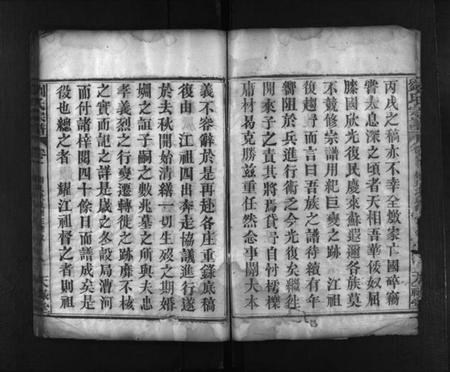 丙戌之稿亦不幸全燬家亡國碎竊
嘗太息深之頃者天相吾華倭奴屈
膝國欣光復民慶來蘇遐邇各族莫
不競修宗譜用紀巨變之跡 江祖
復趨 而言曰吾族之譜待續有年
嚮阻於兵進行術之今光復矣繼往
開來子之責其將焉貸 自忖樗櫟
庸材曷克勝茲重任然念事關大本
義不容辭於是再赴各庄重錄底稿
復由 江祖四出奔走協議進行遂
於去秋開始清繕一切生歿之期婚
姻之誼子嗣之數兆墓之所與夫忠
孝義烈之行變遷轉徙之跡靡不核
之實而記之詳是歲之冬設局漕河
而付諸梓閱四十餘日而譜成矣是
役也總之者 耀江祖督之者則祖